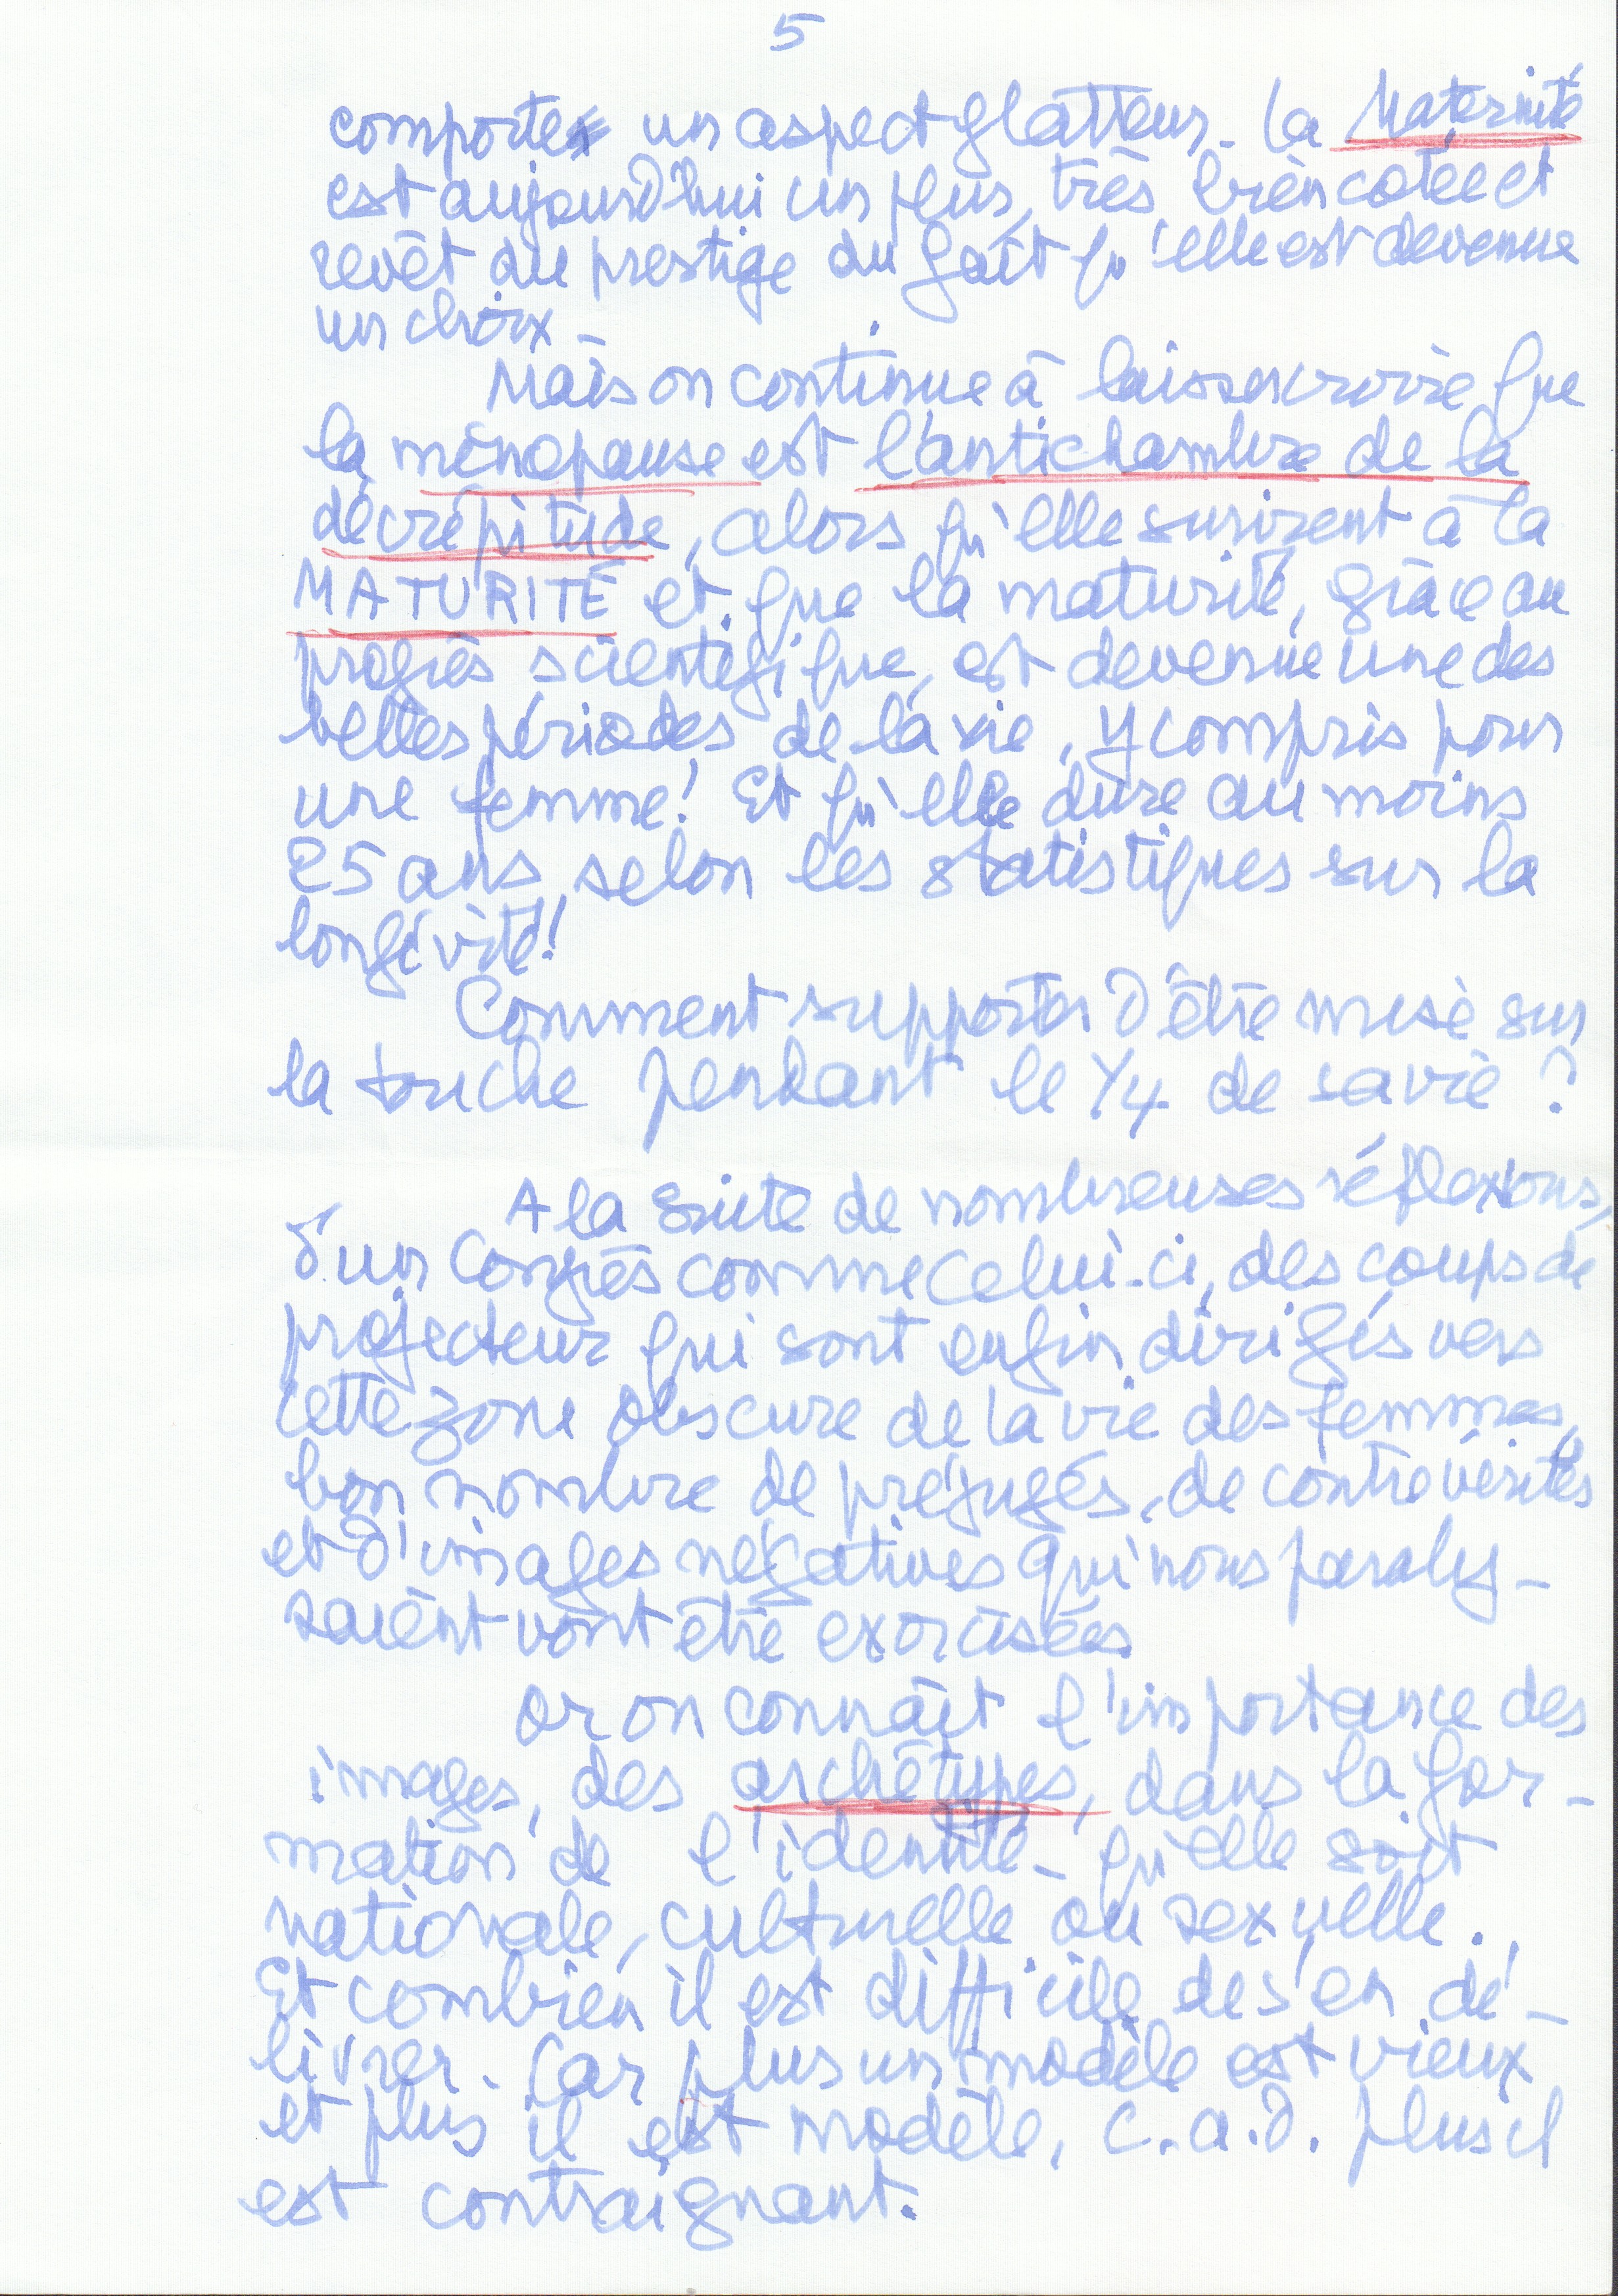 5
comporte un aspect flatteur. La Maternité
est aujourd'hui un plus, très bien cotée et
revêt du prestige du fait qu'elle est devenue
un choix.
Mais on continue à laisser croire que
la ménopause est l'antichambre de la
décrépitude, alors qu'elle survient à la
MATURITÉ et que la maturité, grâce au
progrès scientifique, est devenue une des
belles périodes de la vie, y compris pour
une femme! Et qu'elle dure au moins
25 ans, selon les statistiques sur la
longévité!
Comment supporter d'être mise sur
la touche pendant le 1/4 de sa vie ?
A la suite de nombreuses réflexions,
d'un Congrès comme celui-ci, des coups de
projecteur qui sont enfin dirigés vers
cette zone obscure de la vie des femmes,
bon nombre de préjugés, de contrevérités
et d'images négatives qui nous paraly-
saient vont être exorcisées.
Or on connaît l'importance des
images, des archétypes, dans la for-
mation de l'identité - qu'elle soit
nationale, culturelle ou sexuelle.
Et combien il est difficile de s'en dé-
livrer. Car plus un modèle est vieux
et plus il est modèle, c.a.d. plus il
est contraignant.